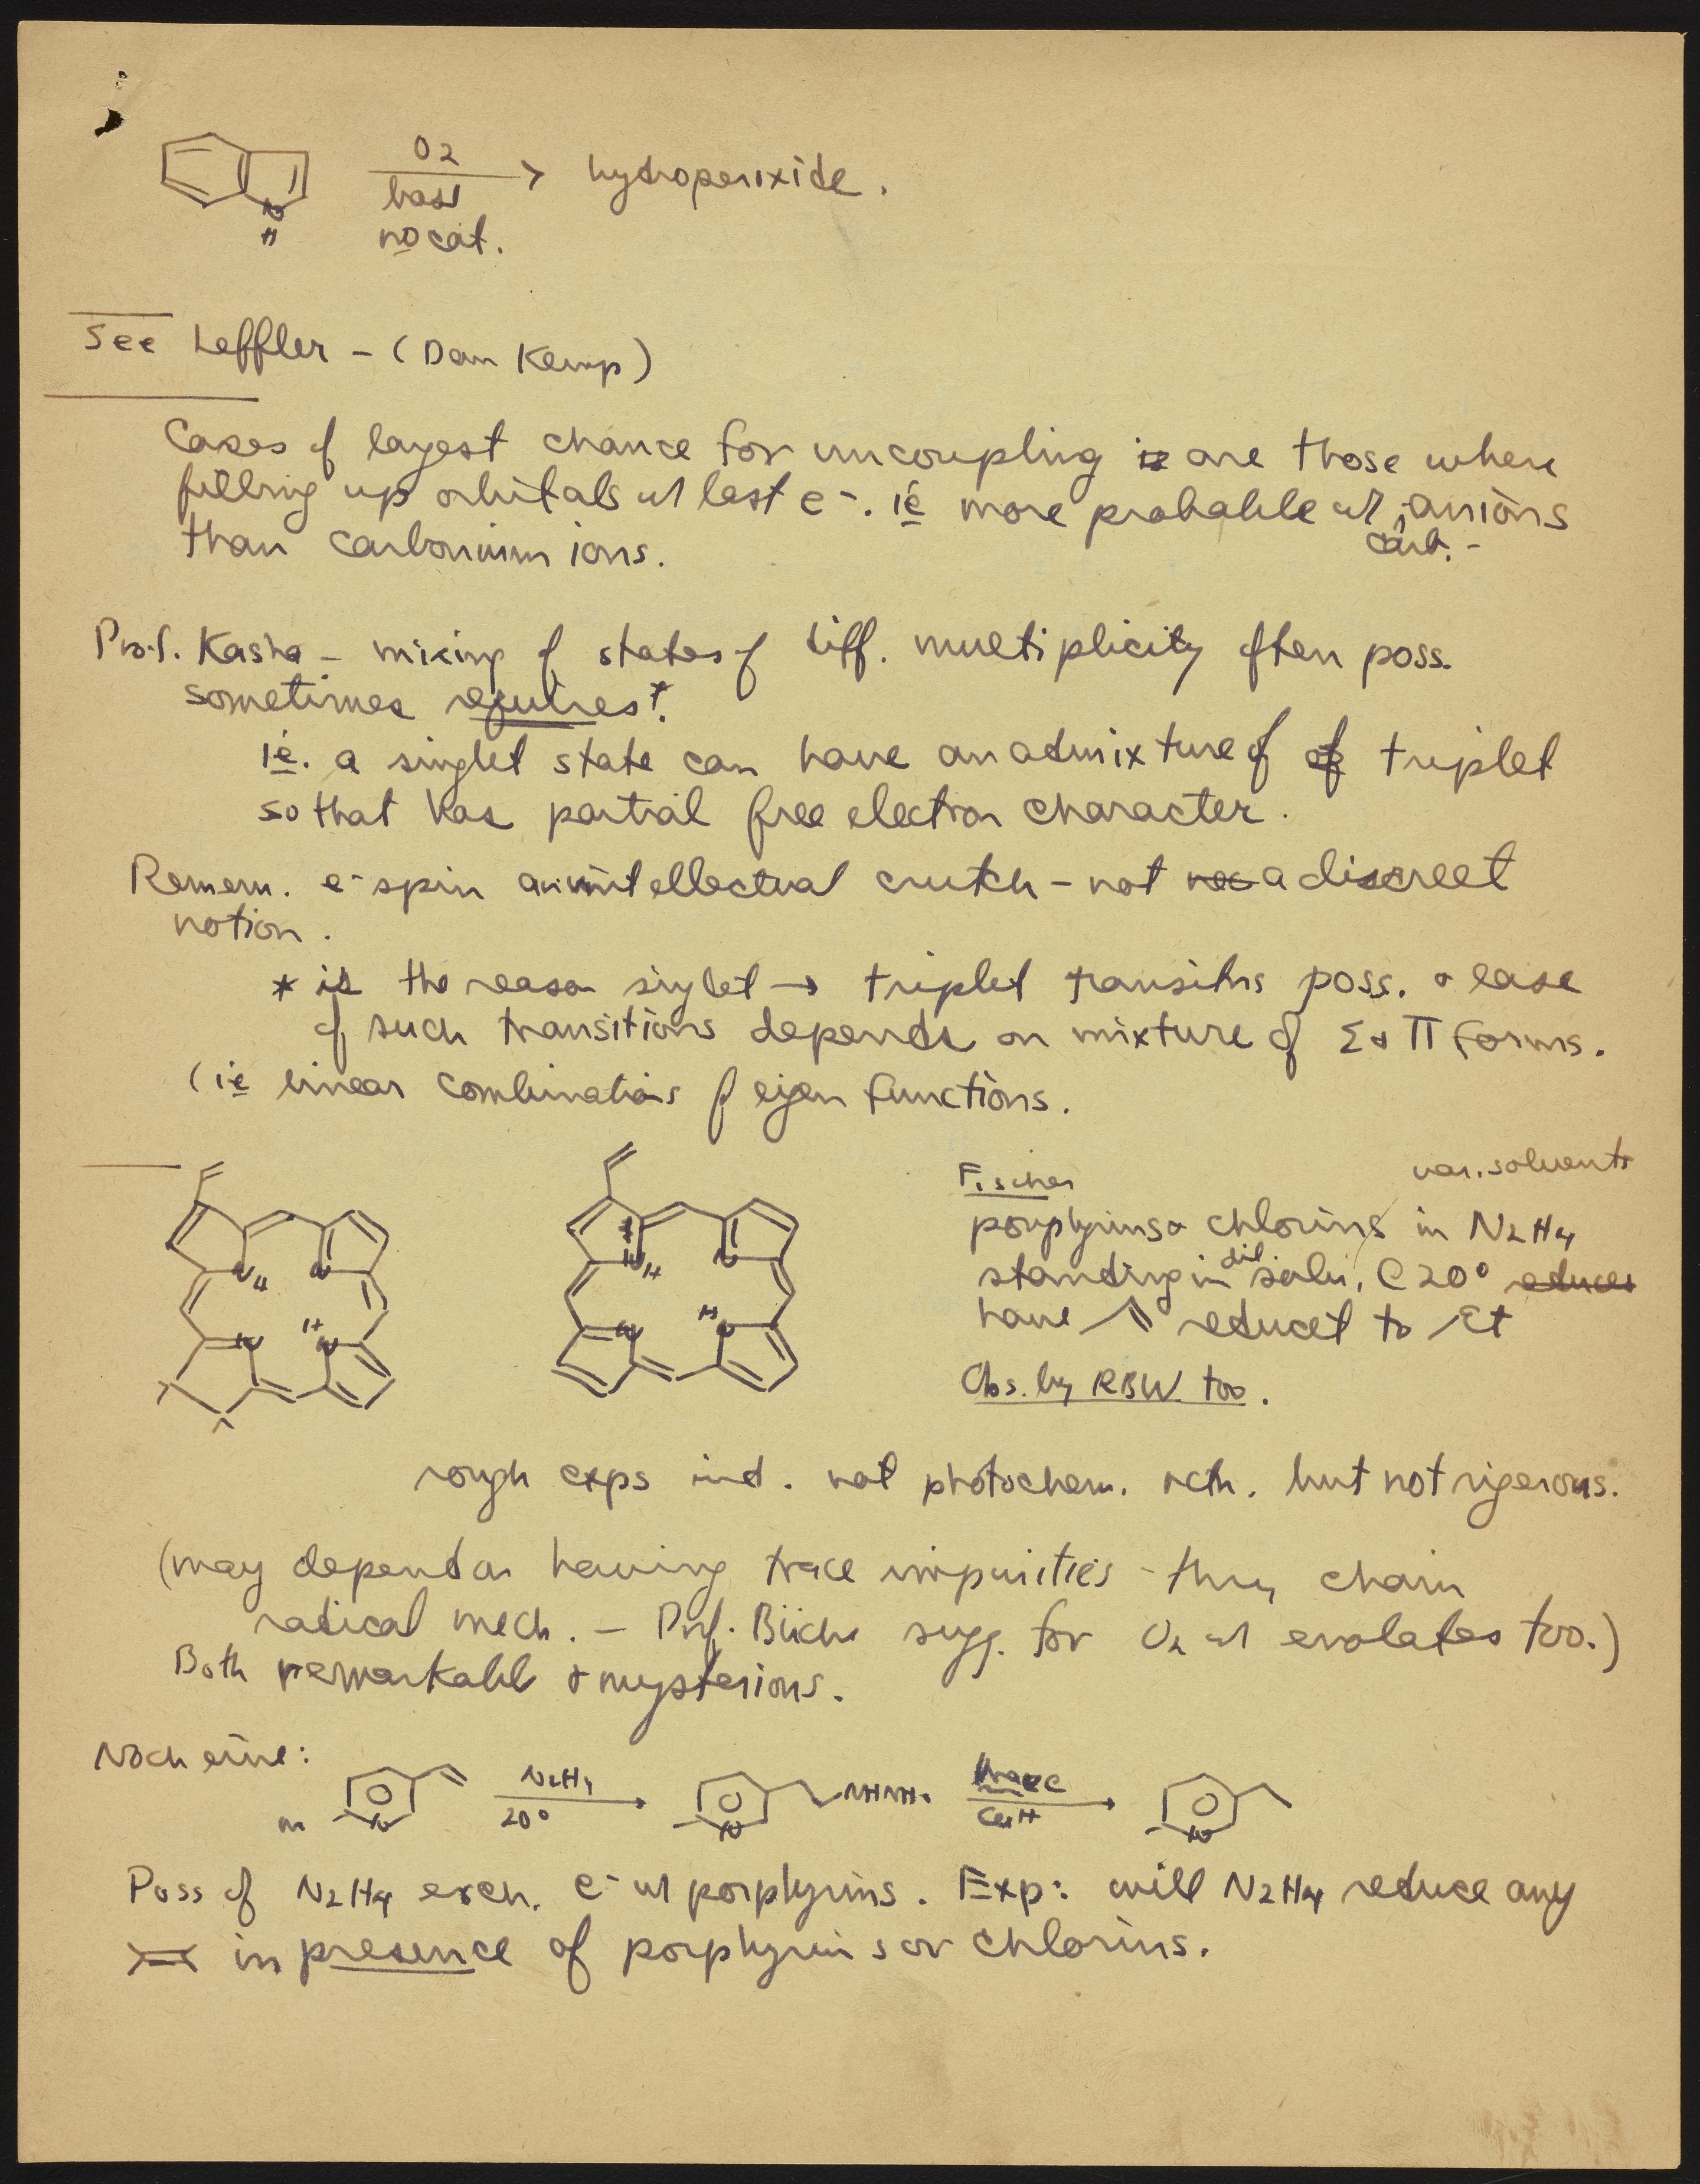 O2
base
no cat.
N
H
hydroperoxide.
See Leffler - (Dan Kemp)
Cases of largest chance for uncoupling is are those where
filling up orbitals w/ last e-. ie more probable w/ anions
carb.-
than carbonium ions.
Prof. Kasha - mixing of states of diff. multiplicity often poss.
sometimes requires*.
ie. a singlet state can have an admixture of of triplet
so that has partial free electron character.
Remem. e- spin an intellectual crutch - not a discreet
notion.
* is the reason singlet → triplet transitns poss. & ease
of such transitions depends on mixture of Σ & Π forms.
(ie linear combinations of eigen functions.
N H N
N H N
N H N
N H N
Fischer
var. solvents
porphyrins & chlorins in N2H4
standing in dil soln. @ 20° reduces
have reduced to Et
Obs. by RBW too.
rough exps ind. not photochem. rctn. but not rigerous.
(may depend on having trace impurities - thru chain
radical mech. - Prof. Büchi sugg. for O2 w/ enolates too.)
Both remarkable & mysterious.
Noch eine:
N
N2H4
20°
N
NHNH2
N
Poss of N2H4 exch. e- w/ porphyrins. Exp: will N2H4 reduce any
in presence of porphyrins or chlorins.